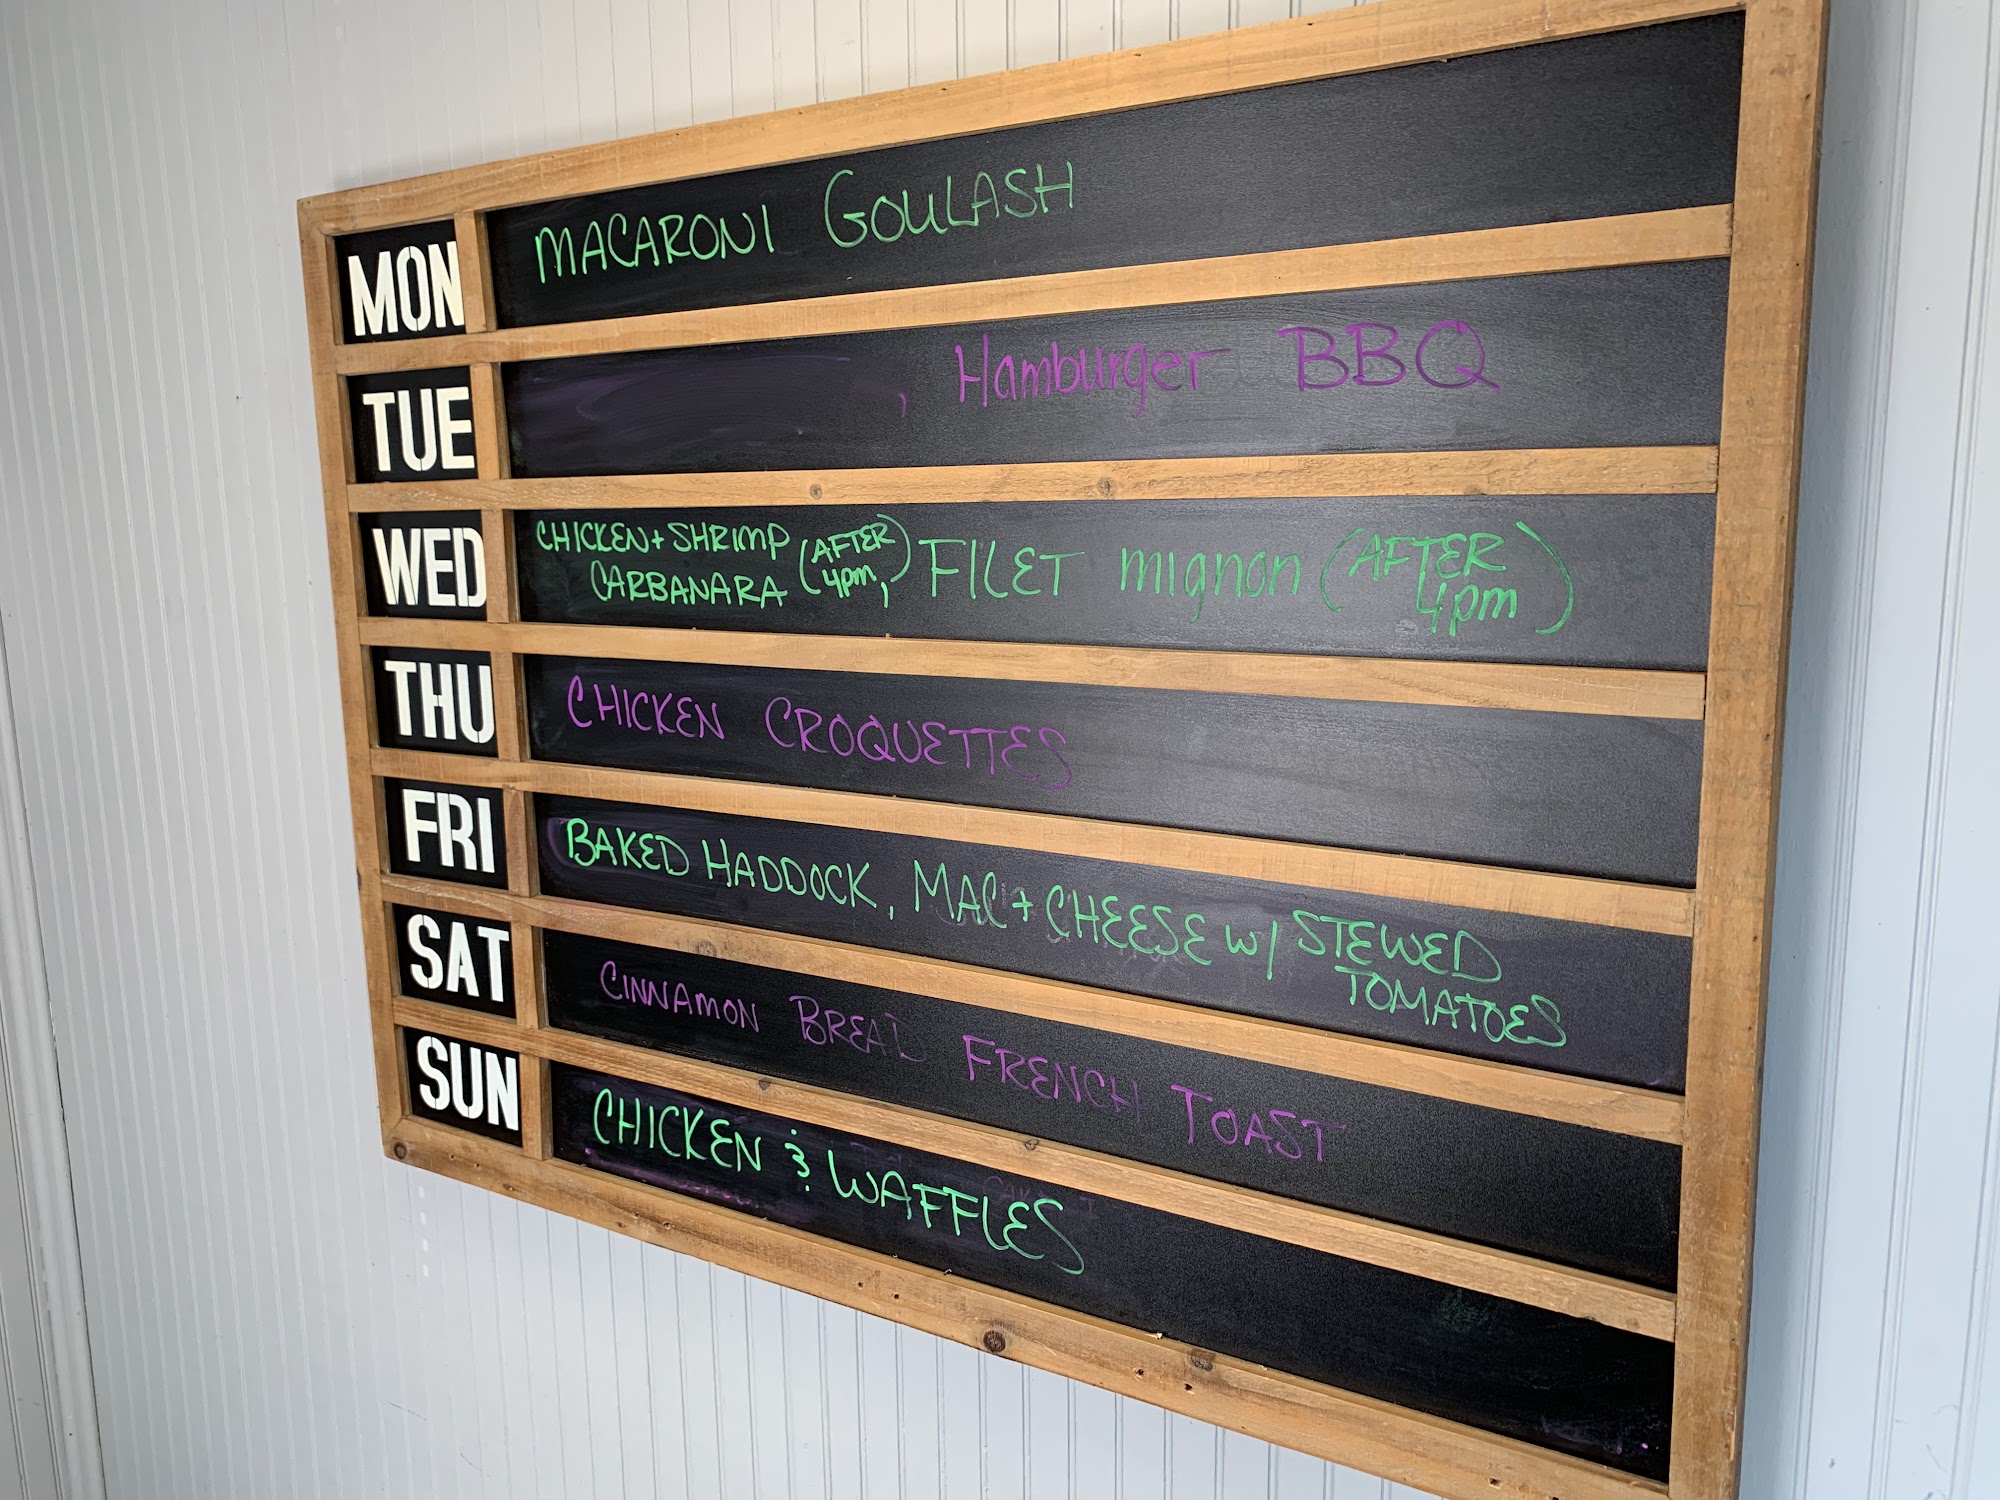 MON
MACARONI GOULASH
TUE
, Hamburger BBQ
WED
CHICKEN + SHRIMP (AFTER
CARBANARA 4pm, )
FILET mignon (AFTER
4pm )
THU
CHICKEN CROQUETTES
FRI
BAKED HADDOCK, MAC + CHEESE w/ STEWED
TOMATOES
SAT
CINNAMON BREAD FRENCH TOAST
SUN
CHICKEN & WAFFLES